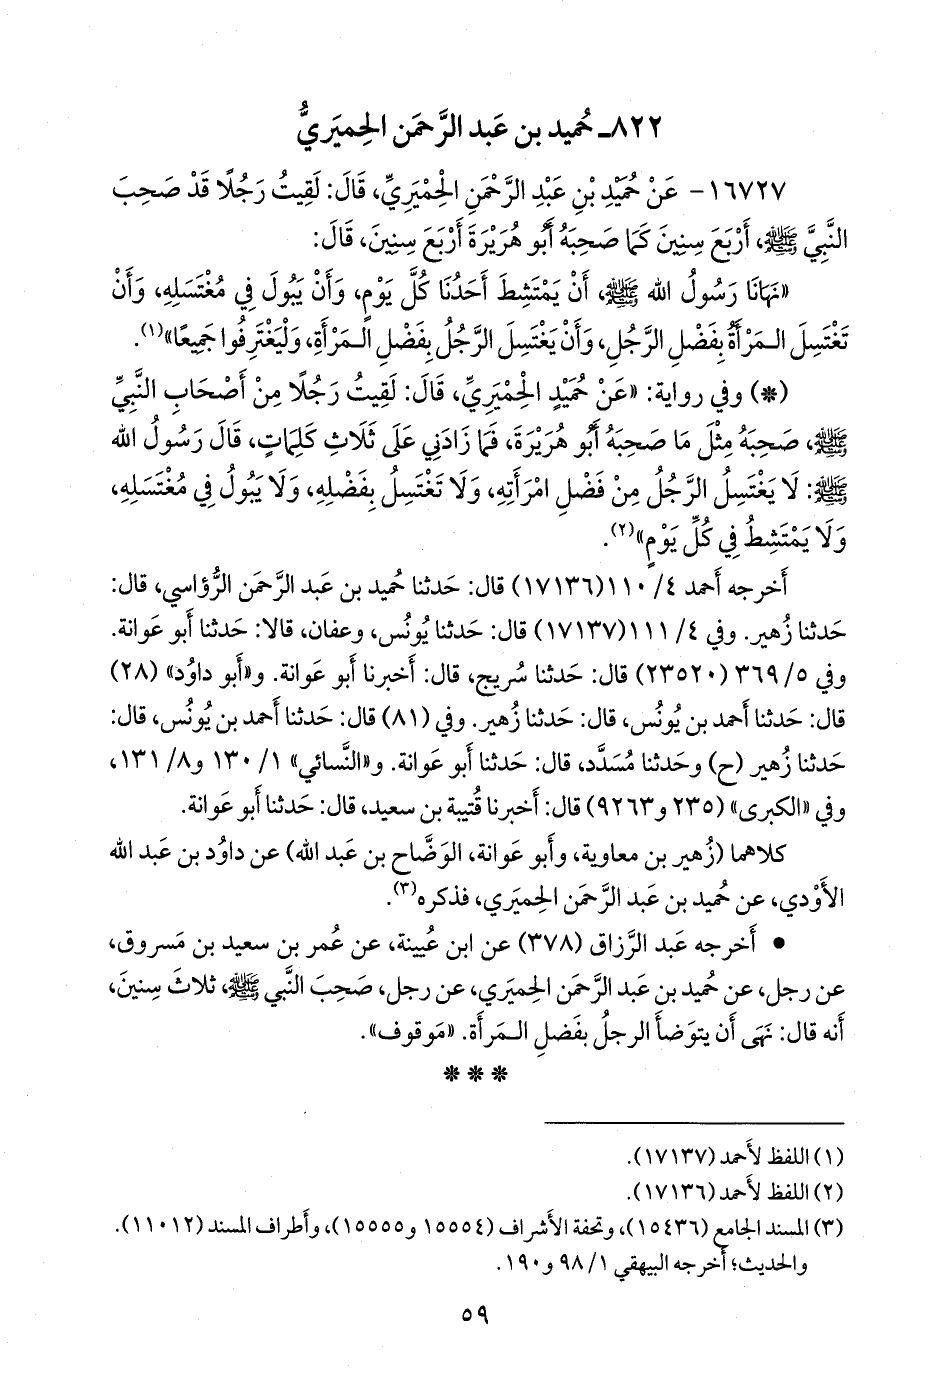 ٨٢٢ـ حُميد بن عَبد الرَّحمَن الحِميَريُّ
١٦٧٢٧- عَنْ حُمَيْدِ بْنِ عَبْدِ الرَّحْمَنِ الْحِمْيَرِيِّ، قَالَ: لَقِيتُ رَجُلًا قَدْ صَحِبَ
النَّبِيَّ ﷺ، أَرْبَعَ سِنِينَ كَمَا صَحِبَهُ أَبُو هُرَيْرَةَ أَرْبَعَ سِنِينَ، قَالَ:
«نَهَانَا رَسُولُ الله ﷺ، أَنْ يَمْتَشِطَ أَحَدُنَا كُلَّ يَوْمٍ، وَأَنْ يَبُولَ فِي مُغْتَسَلِهِ، وَأَنْ
تَغْتَسِلَ الـمَرْأَةُ بِفَضْلِ الرَّجُلِ، وَأَنْ يَغْتَسِلَ الرَّجُلُ بِفَضْلِ الـمَرْأَةِ، وَلْيَغْتَرِفُوا جَمِيعًا»(١).
(*) وفي رواية: «عَنْ حُمَيْدٍ الْحِمْيَرِيِّ، قَالَ: لَقِيتُ رَجُلًا مِنْ أَصْحَابِ النَّبِيِّ
ﷺ، صَحِبَهُ مِثْلَ مَا صَحِبَهُ أَبُو هُرَيْرَةَ، فَمَا زَادَنِي عَلَى ثَلَاثِ كَلِمَاتٍ، قَالَ رَسُولُ الله
ﷺ: لَا يَغْتَسِلُ الرَّجُلُ مِنْ فَضْلِ امْرَأَتِهِ، وَلَا تَغْتَسِلُ بِفَضْلِهِ، وَلَا يَبُولُ فِي مُغْتَسَلِهِ،
وَلَا يَمْتَشِطُ فِي كُلِّ يَوْمٍ»(٢).
أَخرجه أَحمد ٤/ ١١٠(١٧١٣٦) قال: حَدثنا حُميد بن عَبد الرَّحمَن الرُّؤاسي، قال:
حَدثنا زُهير. وفي ٤/ ١١١(١٧١٣٧) قال: حَدثنا يُونُس، وعفان، قالا: حَدثنا أَبو عَوانة.
وفي ٥/ ٣٦٩ (٢٣٥٢٠) قال: حَدثنا سُريج، قال: أَخبرنا أَبو عَوانة. و«أَبو داوُد» (٢٨)
قال: حَدثنا أَحمد بن يُونُس، قال: حَدثنا زُهير. وفي (٨١) قال: حَدثنا أَحمد بن يُونُس، قال:
حَدثنا زُهير (ح) وحَدثنا مُسَدَّد، قال: حَدثنا أَبو عَوانة. و«النَّسائي» ١/ ١٣٠ و٨/ ١٣١،
وفي «الكبرى» (٢٣٥ و٩٢٦٣) قال: أَخبرنا قُتيبة بن سعيد، قال: حَدثنا أَبو عَوانة.
كلاهما (زُهير بن معاوية، وأَبو عَوانة، الوَضَّاح بن عَبد الله) عن داوُد بن عَبد الله
الأَوْدي، عن حُميد بن عَبد الرَّحمَن الحِميَري، فذكره(٣).
• أَخرجه عَبد الرَّزاق (٣٧٨) عن ابن عُيينة، عن عُمر بن سعيد بن مَسروق،
عن رجل، عن حُميد بن عَبد الرَّحمَن الحِميَري، عن رجل، صَحِبَ النَّبي ﷺ، ثلاثَ سِنينَ،
أَنه قال: نَهَى أَن يتوَضأَ الرجلُ بفَضلِ الـمَرأَة. «مَوقوف».
* * *
(١) اللفظ لأَحمد (١٧١٣٧).
(٢) اللفظ لأَحمد (١٧١٣٦).
(٣) المسند الجامع (١٥٤٣٦)، وتحفة الأَشراف (١٥٥٥٤ و١٥٥٥٥)، وأَطراف المسند (١١٠١٢).
والحديث؛ أَخرجه البيهقي ١/ ٩٨ و١٩٠.
٥٩